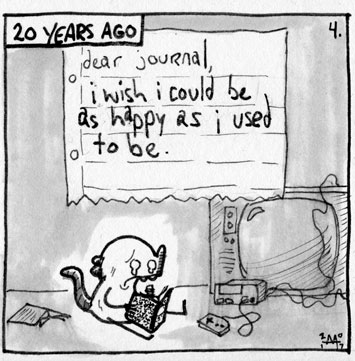 20 YEARS AGO
4.
dear journal,
i wish i could be
as happy as i used
to be.